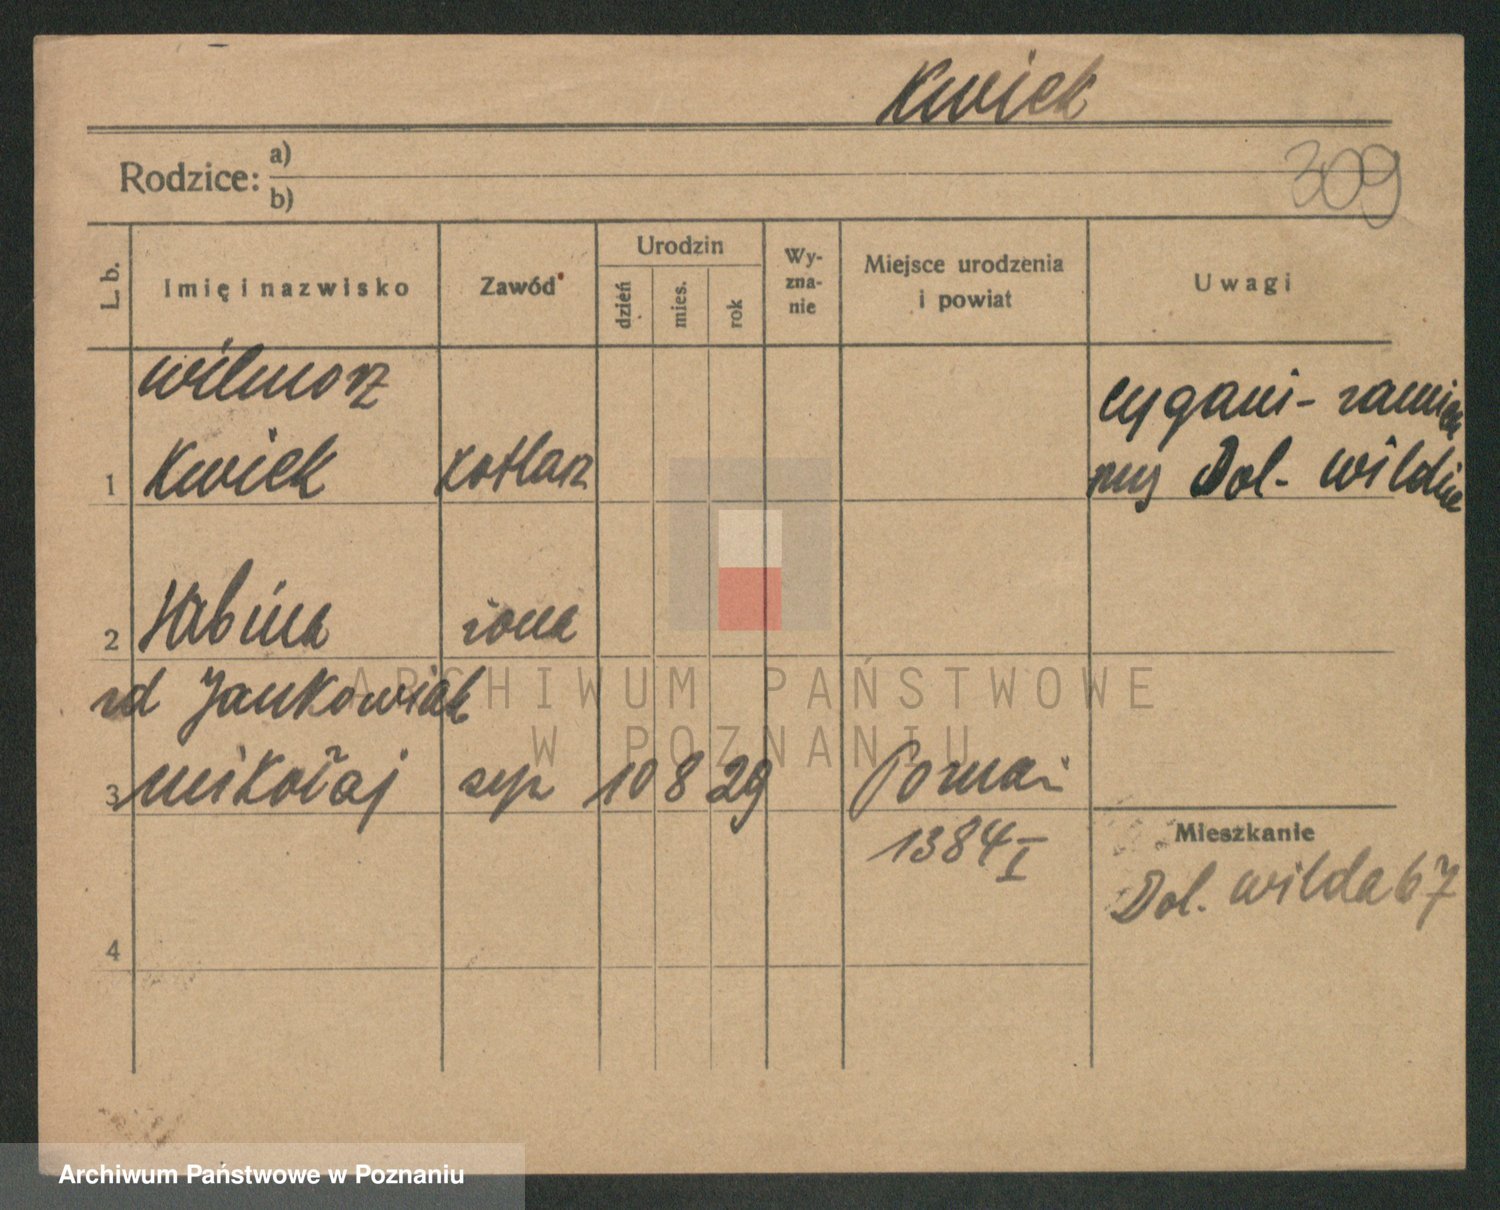 Kwiek
309
Rodzice: a)
b)
L. b.
Imię i nazwisko
Zawód
Urodzin
dzień
mies.
rok
Wy-
zna-
nie
Miejsce urodzenia
i powiat
Uwagi
wilmorz
1 Kwiek kotlarz
cygani - zamiesz
Dol. wildzie
2 żona
zd Jankowiak
3 mikołaj syn 10 8 29 Poznań
1384 I
Mieszkanie
Dol. wilda 67
4
ARCHIWUM PAŃSTWOWE
W POZNANIU
Archiwum Państwowe w Poznaniu